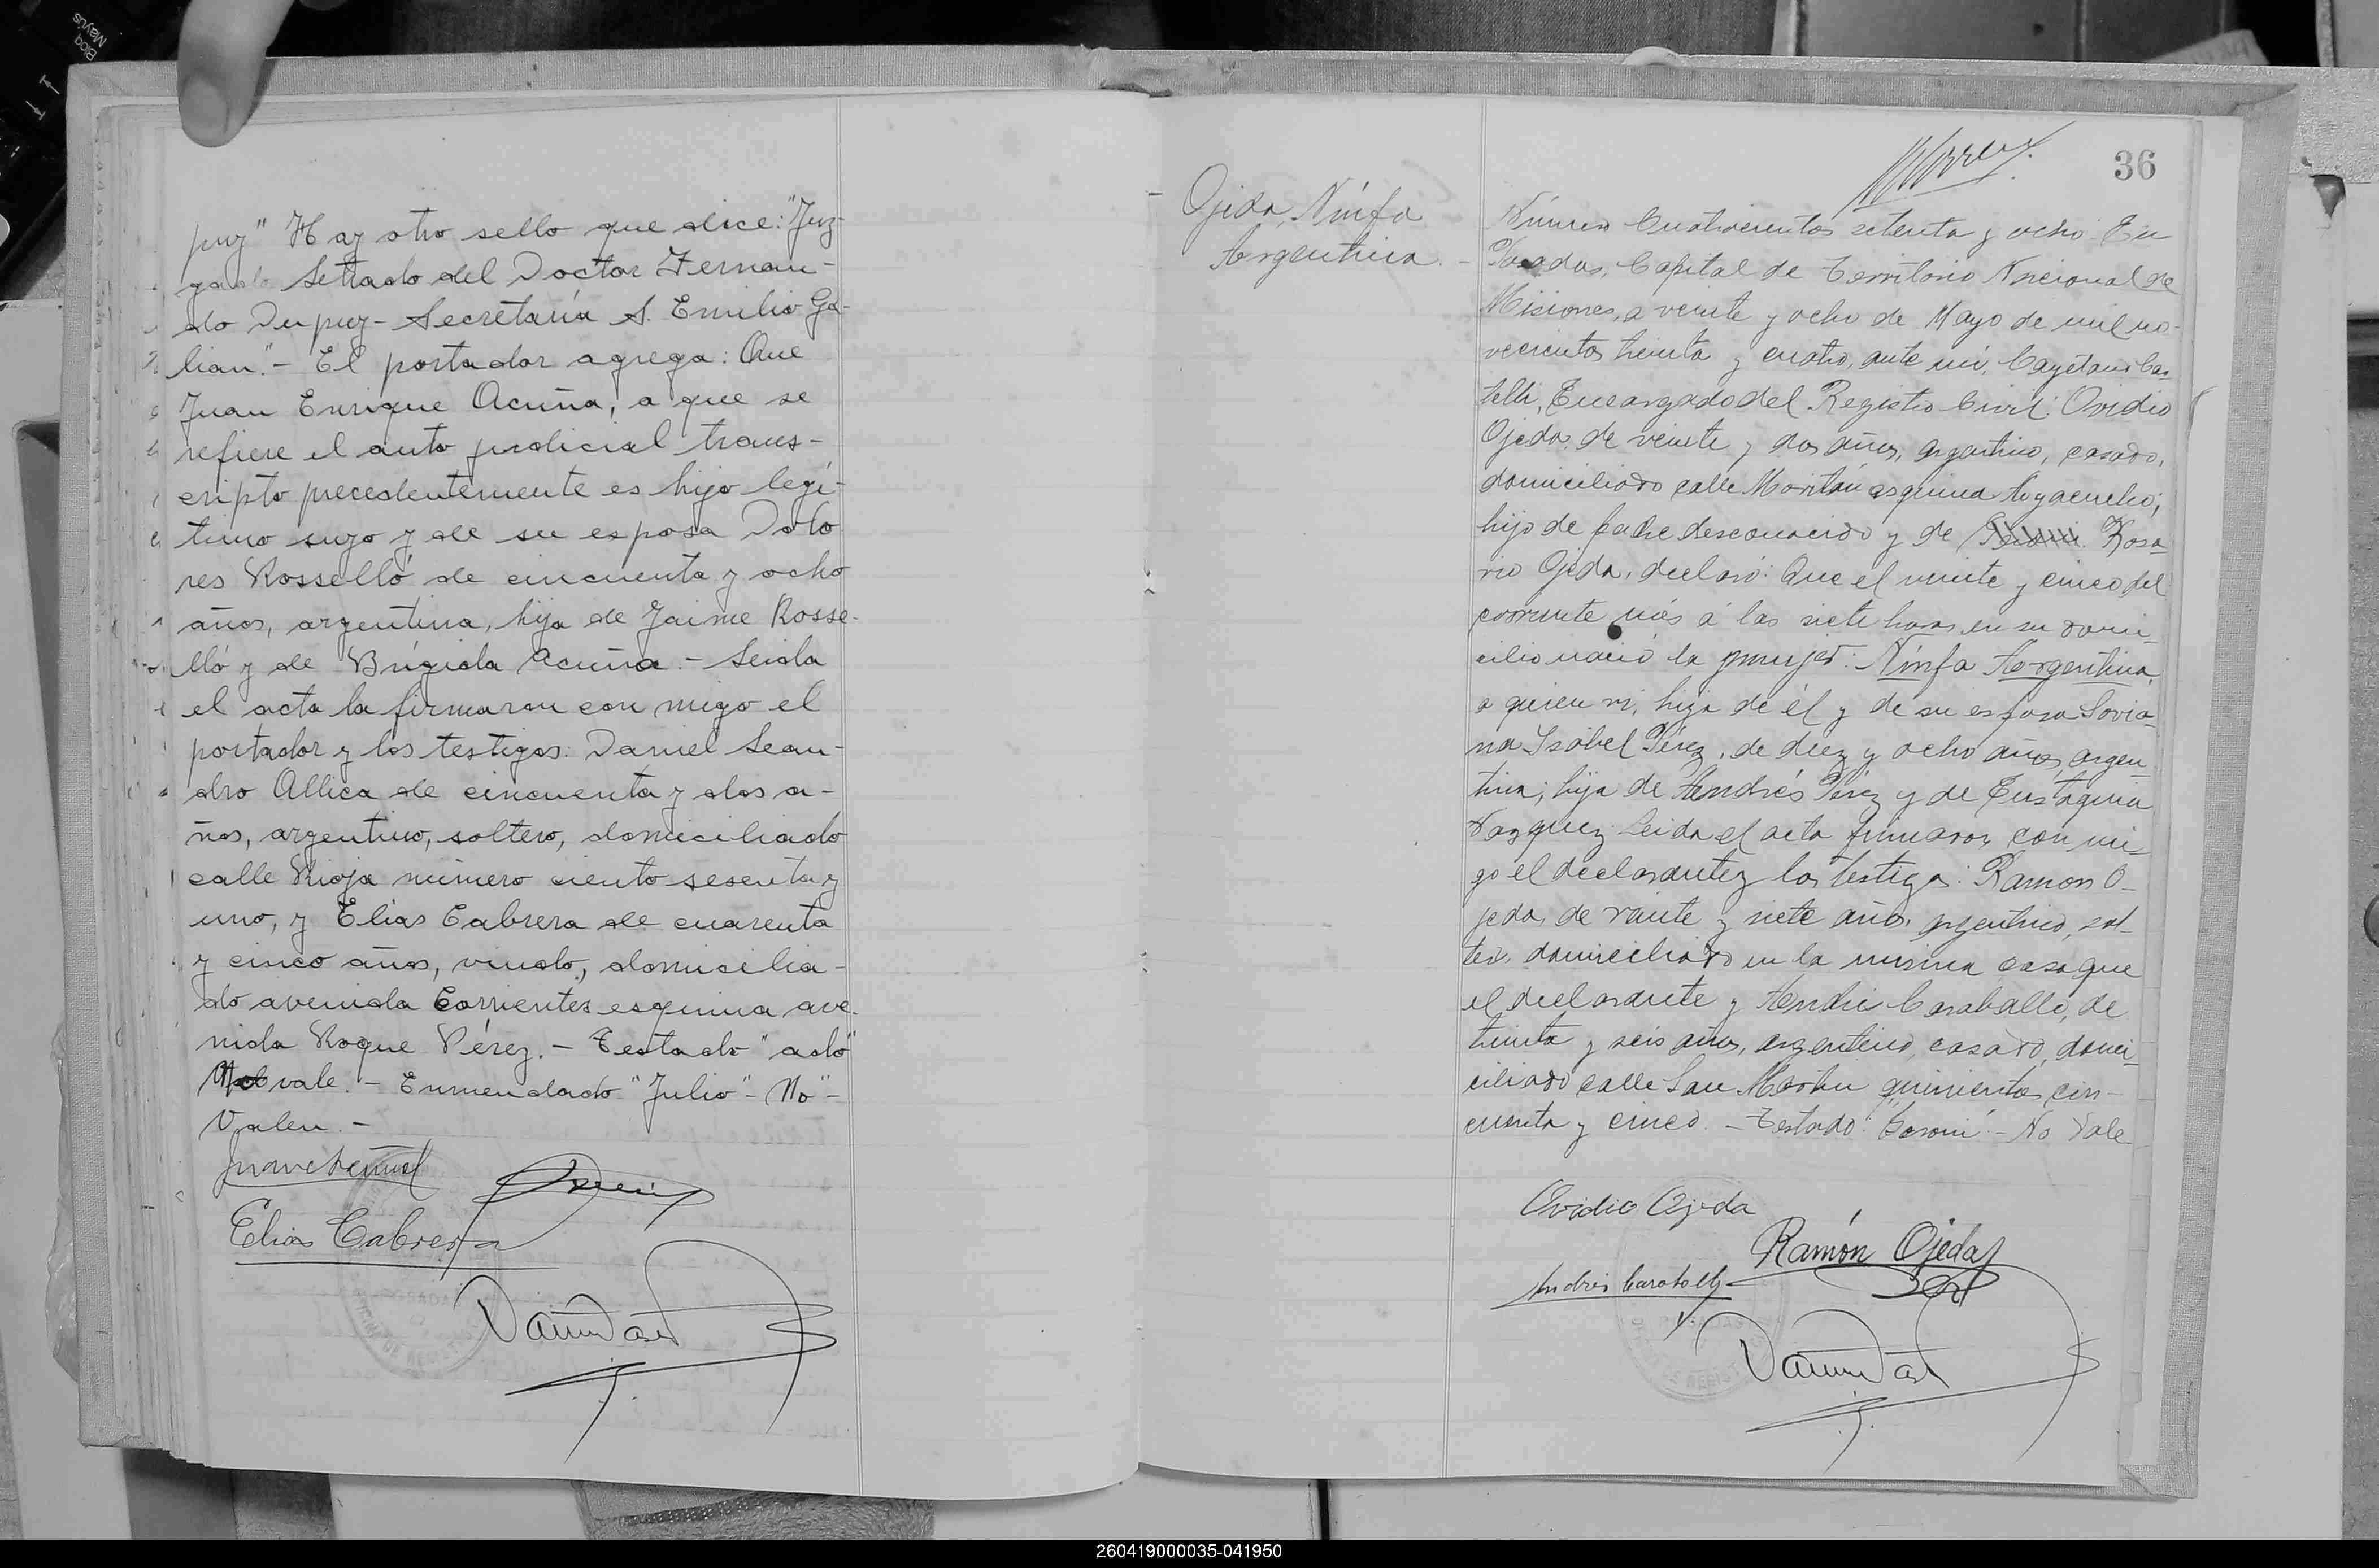 puy" Hay otro sello que dice: "Juz-
gado Letrado del Doctor Fernan-
do Dupuy - Secretaría S. Emilio Ga-
lian." - El portador agrega: Que
Juan Enrique Acuña, a que se
refiere el auto judicial trans-
cripto precedentemente es hijo legí-
timo suyo y de su esposa Dolo
res Rosselló de cincuenta y ocho
años, argentina, hija de Jaime Rosse-
lló y de Brígida Acuña. - Leida
el acta la firmaron con migo el
portador y los testigos: Daniel Lean-
dro Allica de cincuenta y dos a-
ños, argentino, soltero, domiciliado
calle Rioja número ciento sesenta y
uno, y Elias Cabrera de cuarenta
y cinco años, viudo, domicilia-
do avenida Corrientes esquina ave-
nida Roque Pérez. - Testado "ado"
No vale. - Enmendado "Julio" - "No" -
Valen. -
Elias Cabrera
36
Ojeda, Ninfa
Argentina. -
Número Cuatrocientos setenta y ocho. En
Posadas, Capital de Territorio Nacional de
Misiones, a veinte y ocho de Mayo de mil no-
vecientos treinta y cuatro, ante mí, Cayetano Cas
telli, Encargado del Registro Civil: Ovidio
Ojeda, de veinte y dos años, argentino, casado,
domiciliado calle esquina Ayacucho,
hijo de padre desconocido y de Rosa
rio Ojeda, declaró: Que el veinte y cinco del
corriente més á las siete horas, en su domi-
cilio nació la mujer: Ninfa Argentina,
a quien vi, hija de él y de su esposa
na Isabel Pérez, de diez y ocho años, argen-
tina, hija de Andrés Pérez y de Eustaquia
Vazquez. Leida el acta firmaron con mi-
go el declarante y los testigos: Ramon O-
jeda, de veinte y siete años, argentino, sol-
tero, domiciliado en la misma casa que
el declarante y Andres Caraballo, de
treinta y seis años, argentino, casado, domi-
ciliado calle San Martin quinientos cin-
cuenta y cinco. - Testado: - No Vale
Ovidio Ojeda
Ramón Ojeda
260419000035-041950